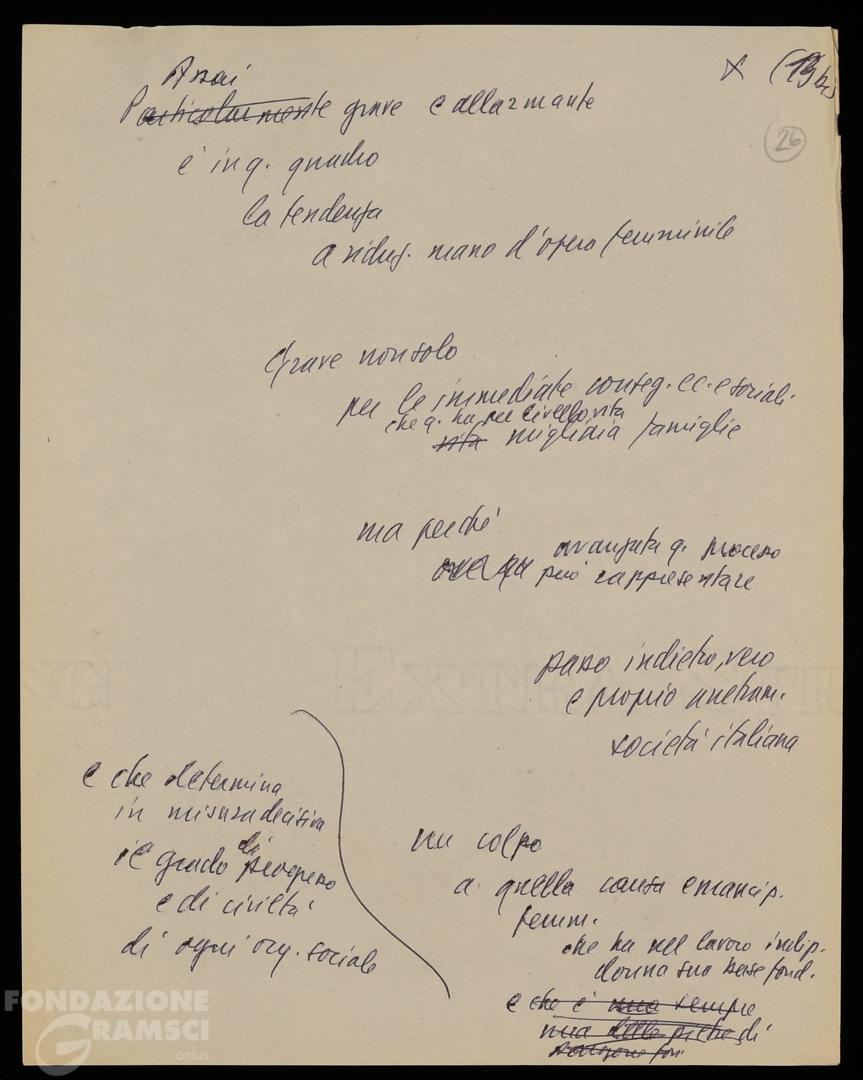 X (19 bis
26
Assai
Particolarmente grave e allarmante
è in q. quadro
la tendenza
a riduz. mano d'opera femminile
Grave non solo
per le immediate conseg. ec. e sociali.
che q. ha per livello vita
vita migliaia famiglie
ma perché
avanzata q. processo
può rappresentare
passo indietro, vero
e proprio arretram.
società italiana
un colpo
a quella causa emancip.
femm.
che ha nel lavoro indip.
donna sua base fond.
e che è una sempre
una delle pietre di
e che determina
in misura decisiva
il grado di progresso
e di civiltà
di ogni org. sociale
FONDAZIONE
GRAMSCI
onlus